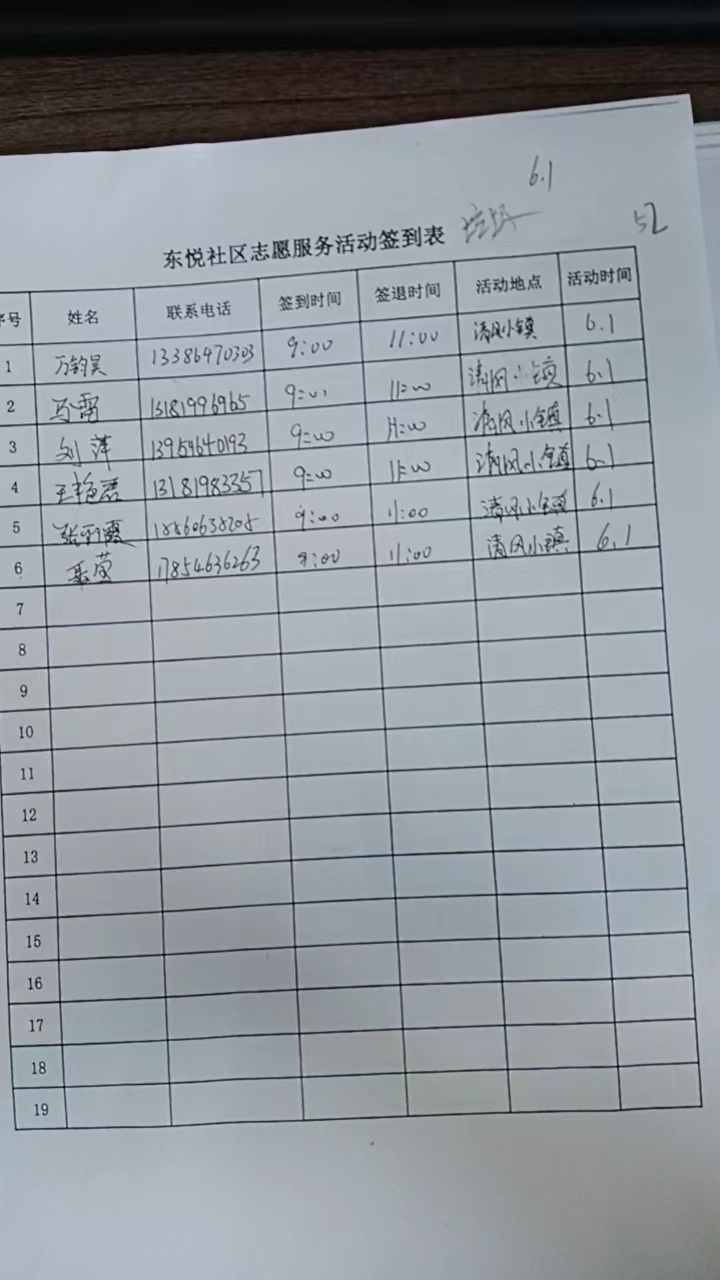 6.1
东悦社区志愿服务活动签到表 52
序号 姓名 联系电话 签到时间 签退时间 活动地点 活动时间
1 万钧昊 13386470303 9:00 11:00 清风小镇 6.1
2 马雷 13181996965 9:00 11:00 清风小镇 6.1
3 刘萍 13954640193 9:00 11:00 清风小镇 6.1
4 王艳君 13181983357 9:00 11:00 清风小镇 6.1
5 18860638205 9:00 11:00 清风小镇 6.1
6 聂萤 17854636263 9:00 11:00 清风小镇 6.1
7
8
9
10
11
12
13
14
15
16
17
18
19